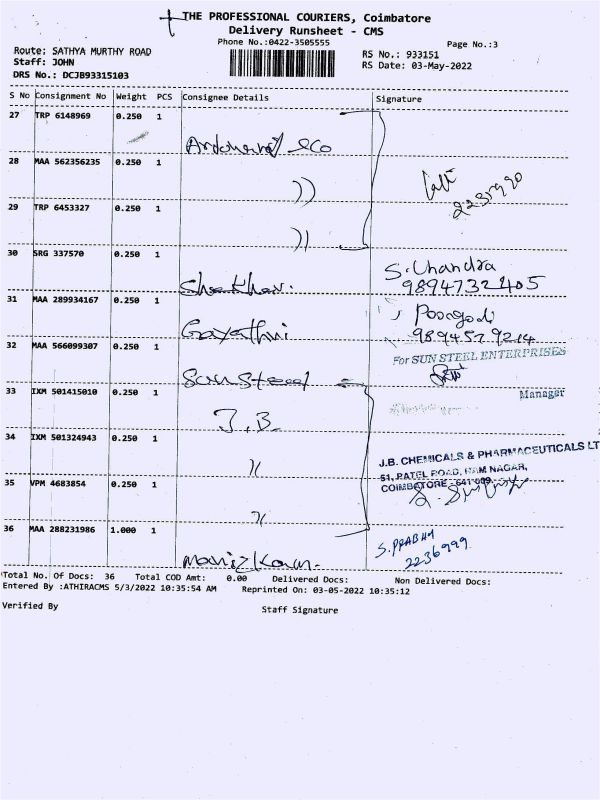 THE PROFESSIONAL COURIERS, Coimbatore
Delivery Runsheet - CMS
Phone No.:0422-3505555
Page No.:3
Route: SATHYA MURTHY ROAD
Staff: JOHN
DRS No.: DCJB93315103
RS No.: 933151
RS Date: 03-May-2022
S No Consignment No Weight PCS Consignee Details Signature
27 TRP 6148969 0.250 1
eco
28 MAA 562356235 0.250 1
))
29 TRP 6453327 0.250 1
))
30 SRG 337570 0.250 1
Shekhar. S. Chandra
9894732405
31 MAA 289934167 0.250 1
Gayathri Poongodi
9894579214
32 MAA 566099307 0.250 1
For SUN STEEL ENTERPRISES
Sun Steel
Manager
33 IXM 501415010 0.250 1
J.B.
34 IXM 501324943 0.250 1
J.B. CHEMICALS & PHARMACEUTICALS LT
51, PATEL ROAD, RAM NAGAR,
COIMBATORE - 641 009.
35 VPM 4683854 0.250 1
36 MAA 288231986 1.000 1
S. PRABHU
2236999
Total No. Of Docs: 36 Total COD Amt: 0.00 Delivered Docs: Non Delivered Docs:
Entered By :ATHIRACMS 5/3/2022 10:35:54 AM Reprinted On: 03-05-2022 10:35:12
Verified By Staff Signature